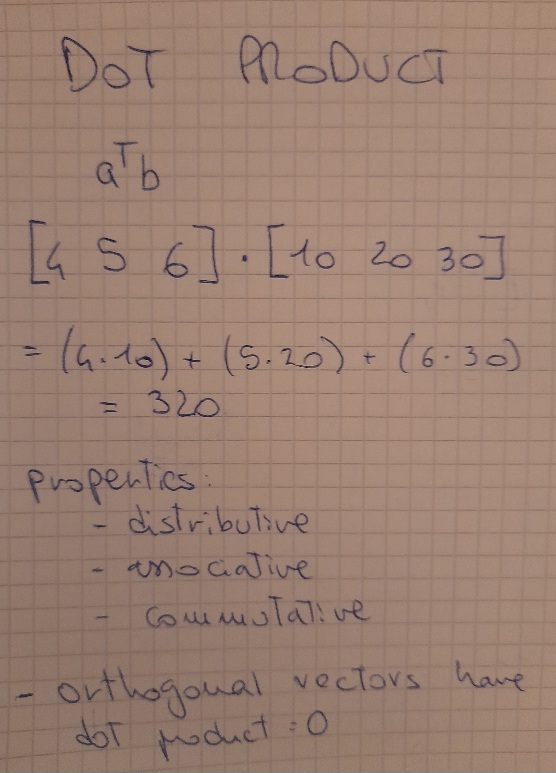 DOT PRODUCT
aᵀb
[4 5 6] · [10 20 30]
= (4·10) + (5·20) + (6·30)
= 320
properties:
- distributive
- associative
- commutative
- orthogonal vectors have
dot product = 0